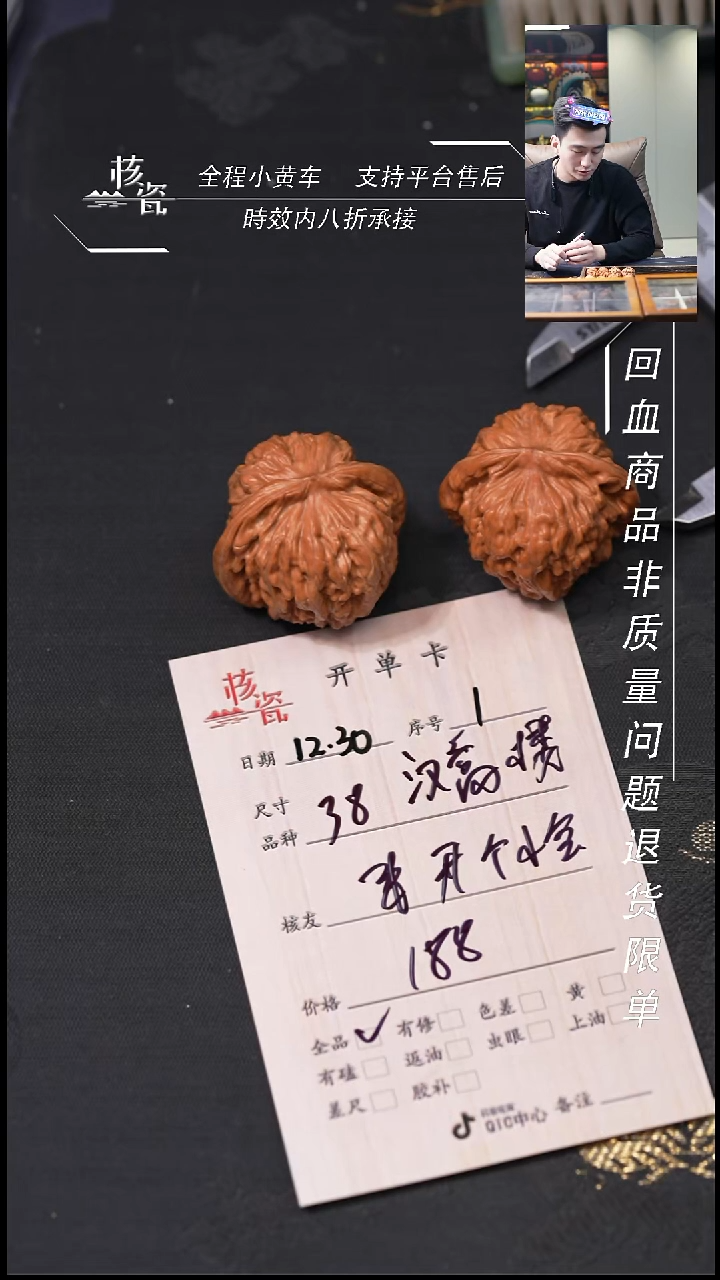 核瓷
全程小黄车 支持平台售后
時效内八折承接
回血商品非质量问题退货限单
核瓷
开单卡
日期 12.30 序号 1
尺寸
品种 38 汉高
核友 开个小宝
价格 188
全品 ✓ 有修 色差 黄
有磕 返油 虫眼 上油
差尺 胶补
QIC中心 备注